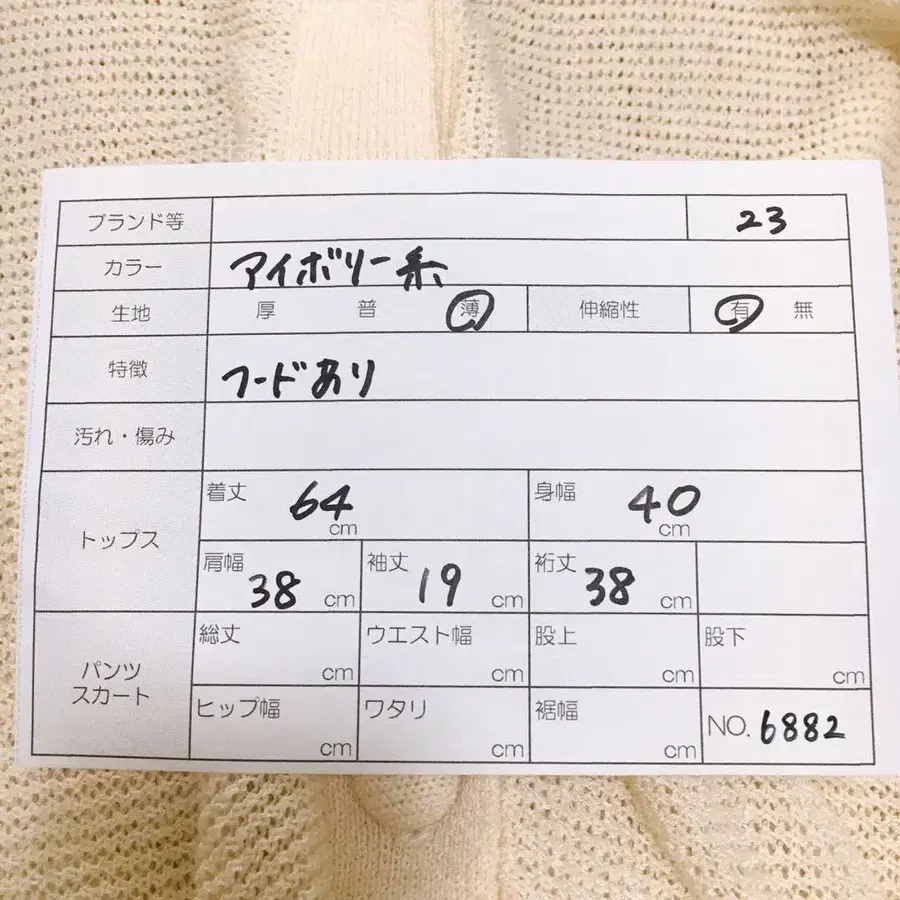 ブランド等 23
カラー アイボリー系
生地 厚 普 薄 伸縮性 有 無
特徴 フードあり
汚れ・傷み
トップス
着丈 64 cm 身幅 40 cm
肩幅 38 cm 袖丈 19 cm 裄丈 38 cm
パンツ
スカート
総丈 cm ウエスト幅 cm 股上 cm 股下 cm
ヒップ幅 cm ワタリ cm 裾幅 cm NO. 6882